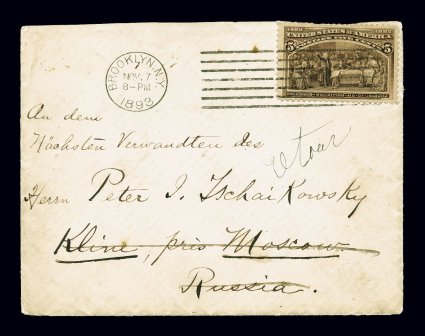 BROOKLYN, N.Y.
NOV. 7
8-PM
1893
1492 1892
UNITED STATES OF AMERICA
5 5
An dem
Nächsten Verwandten des
retour
Herrn Peter I. Tschaikowsky
Klin, près Moscow.
Russia.